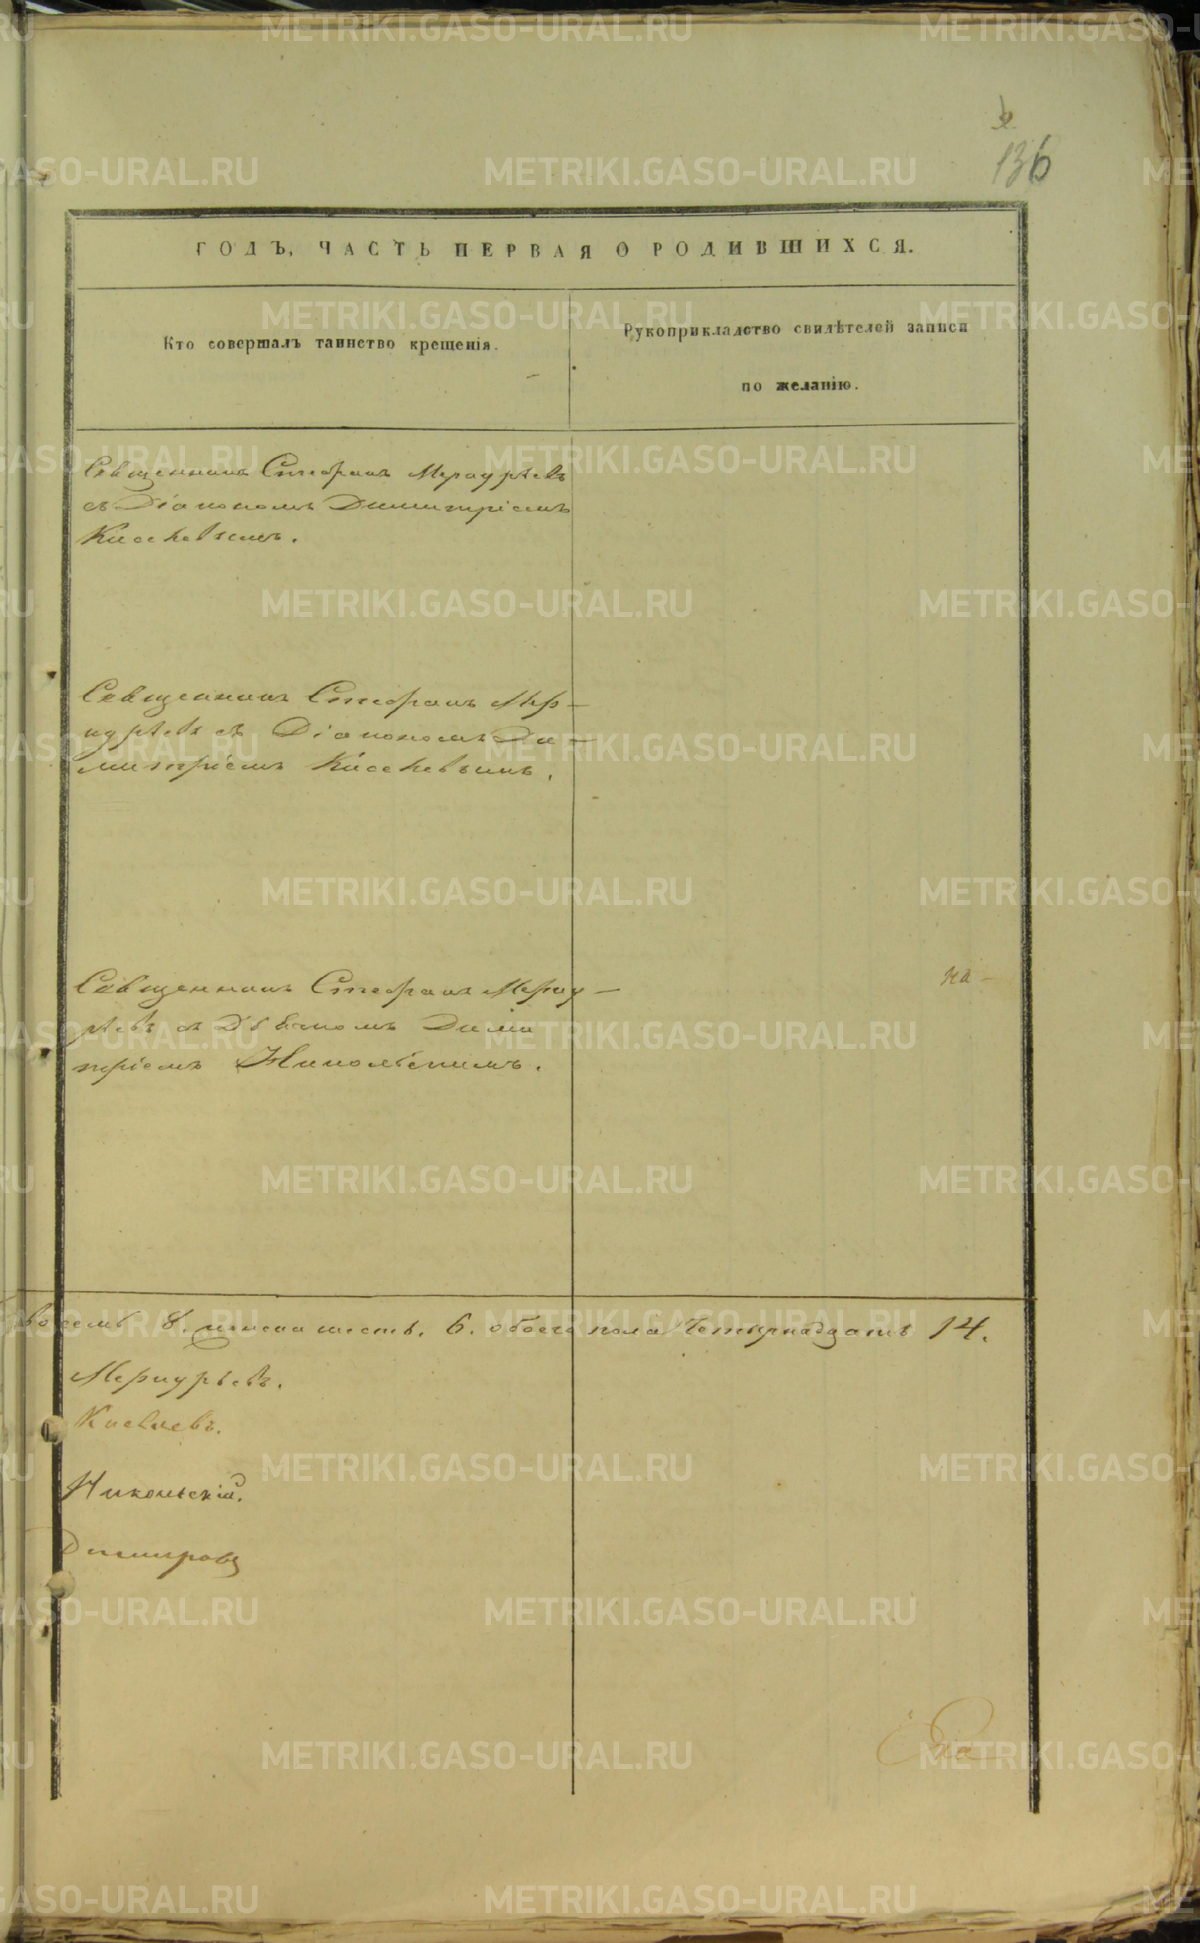 136
ГОДЪ, ЧАСТЬ ПЕРВАЯ О РОДИВШИХСЯ.
Кто совершалъ таинство крещенія.
Рукоприкладство свидѣтелей записи
по желанію.
Священникъ Стефанъ Меркурьевъ
съ Діакономъ Димитріемъ
Священникъ Стефанъ Мер-
курьевъ съ Діакономъ Ди-
митріемъ
на-
Священникъ Стефанъ Мерку-
рьевъ съ Дьячкомъ Дими
тріемъ Никольскимъ.
восемь 8. женска шесть. 6. обоего пола Четырнадцать 14.
Меркурьевъ.
Никольскій.
METRIKI.GASO-URAL.RU